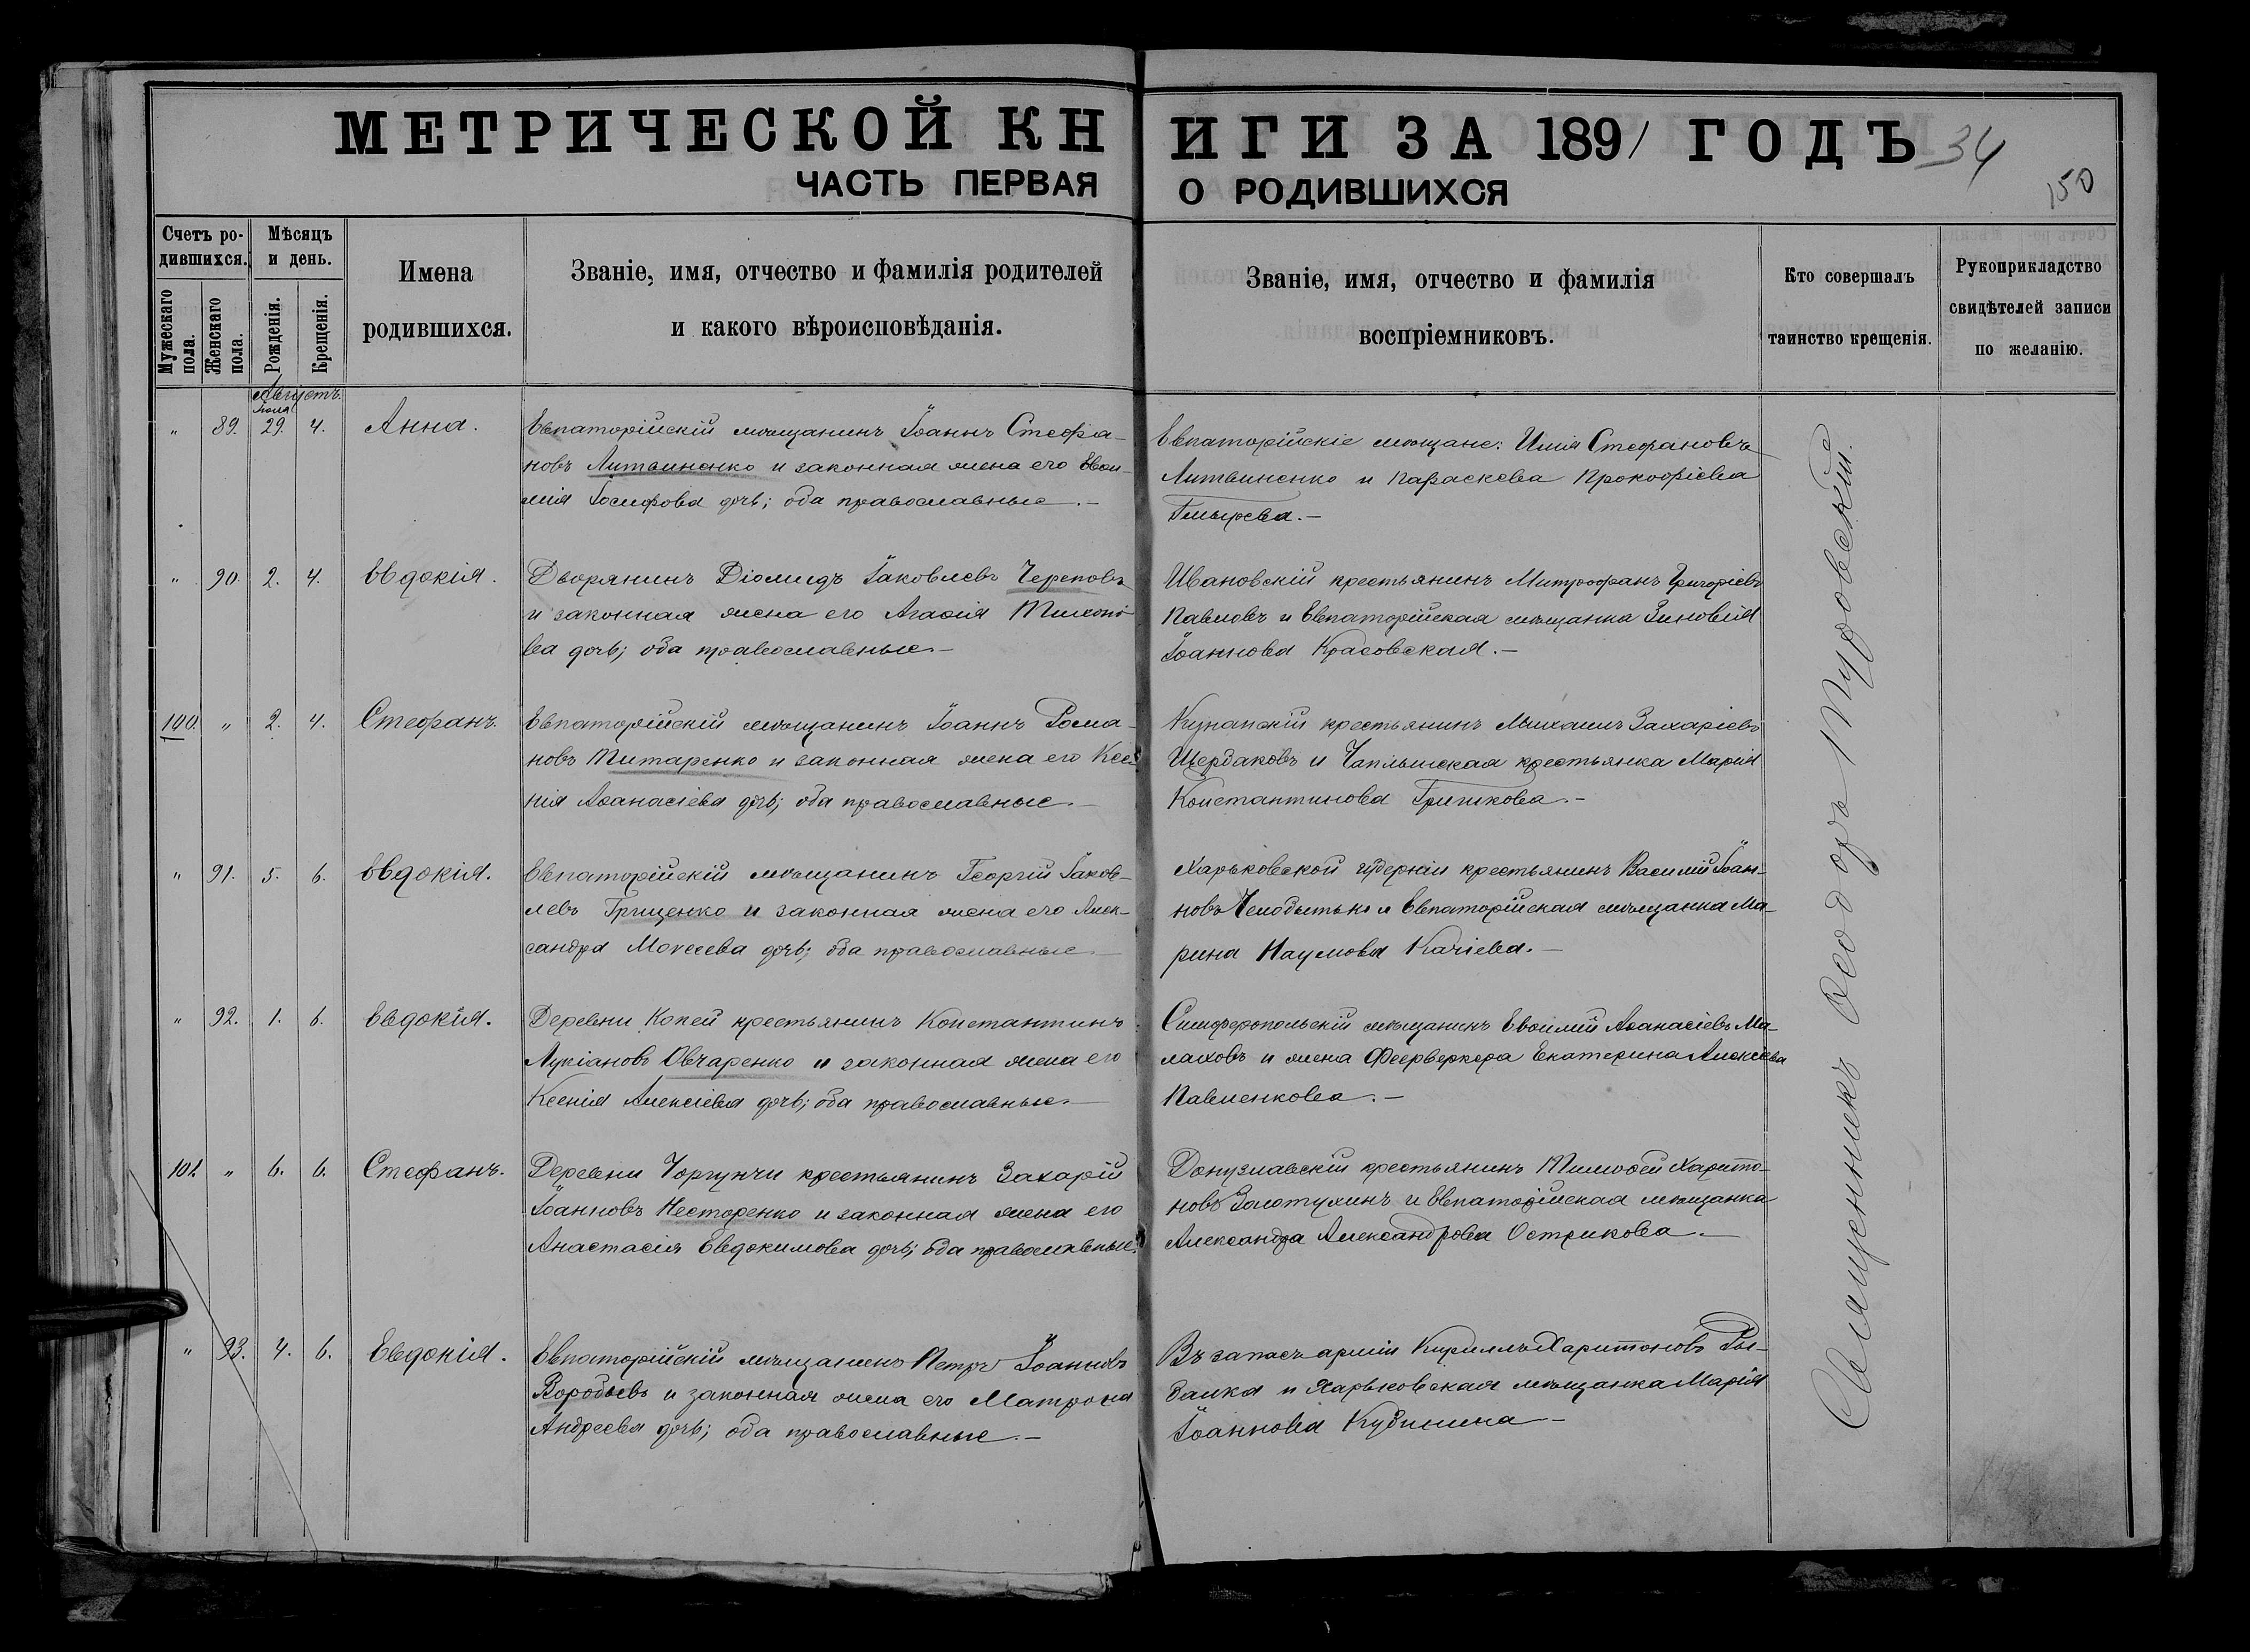 МЕТРИЧЕСКОЙ КНИГИ ЗА 1891 ГОДЪ 34
150
ЧАСТЬ ПЕРВАЯ О РОДИВШИХСЯ
Счетъ ро-
дившихся.
Мужескаго пола.
Женскаго пола.
Мѣсяцъ
и день.
Рожденія.
Крещенія.
Имена
родившихся.
Званіе, имя, отчество и фамилія родителей
и какого вѣроисповѣданія.
Званіе, имя, отчество и фамилія
воспріемниковъ.
Кто совершалъ
таинство крещенія.
Рукоприкладство
свидѣтелей записи
по желанію.
Августъ.
Іюля
" 89. 29. 4. Анна.
Евпаторійскій мѣщанинъ Іоаннъ Стефа-
новъ Литвиненко и законная жена его Евѳи-
мія Іосифова дочь; оба православные.-
Евпаторійскіе мѣщане: Илія Стефановъ
Литвиненко и Параскева Прокофіева
Гмырева.-
" 90. 2. 4. Евдокія.
Дворянинъ Діомидъ Іаковлевъ Череповъ
и законная жена его Агафія Тихоно-
ва дочь; оба православные.-
Ивановскій крестьянинъ Митрофанъ Григоріевъ
Павловъ и Евпаторійская мѣщанка Зиновія
Іоаннова Красовская.-
100. " 2. 4. Стефанъ.
Евпаторійскій мѣщанинъ Іоаннъ Рома-
новъ Титаренко и законная жена его Ксе-
нія Аѳанасіева дочь; оба православные.-
крестьянинъ Михаилъ Захаріевъ
Щербаковъ и Чаплынская крестьянка Марія
Константинова Гришкова.-
" 91. 5. 6. Евдокія.
Евпаторійскій мѣщанинъ Георгій Іаков-
левъ Гриценко и законная жена его Алек-
сандра Моисеева дочь; оба православные.-
Харьковской губерніи крестьянинъ Василій Іоан-
новъ и Евпаторійская мѣщанка Ма-
рина Наумова Качіева.-
" 92. 1. 6. Евдокія.
Деревни Копей крестьянинъ Константинъ
Лукіановъ Овчаренко и законная жена его
Ксенія Алексіева дочь; оба православные.-
Симферопольскій мѣщанинъ Евѳимій Аѳанасіевъ Ма-
лаховъ и жена Феерверкера Екатерина Алексіева
Павленкова.-
101. " 6. 6. Стефанъ.
Деревни Чоргунчи крестьянинъ Захарій
Іоанновъ Несторенко и законная жена его
Анастасія Евдокимова дочь; оба православные.
Донузлавскій крестьянинъ Тимоѳей Харито-
новъ Золотухинъ и Евпаторійская мѣщанка
Александра Александрова Острикова.-
" 93. 4. 6. Евдокія.
Евпаторійскій мѣщанинъ Петръ Іоанновъ
Воробьевъ и законная жена его Матрона
Андреева дочь; оба православные.-
Въ запасѣ арміи Кириллъ Харитоновъ Ры-
балка и Харьковская мѣщанка Марія
Іоаннова Кубинина-
Священникъ Ѳеодоръ Туровскій.